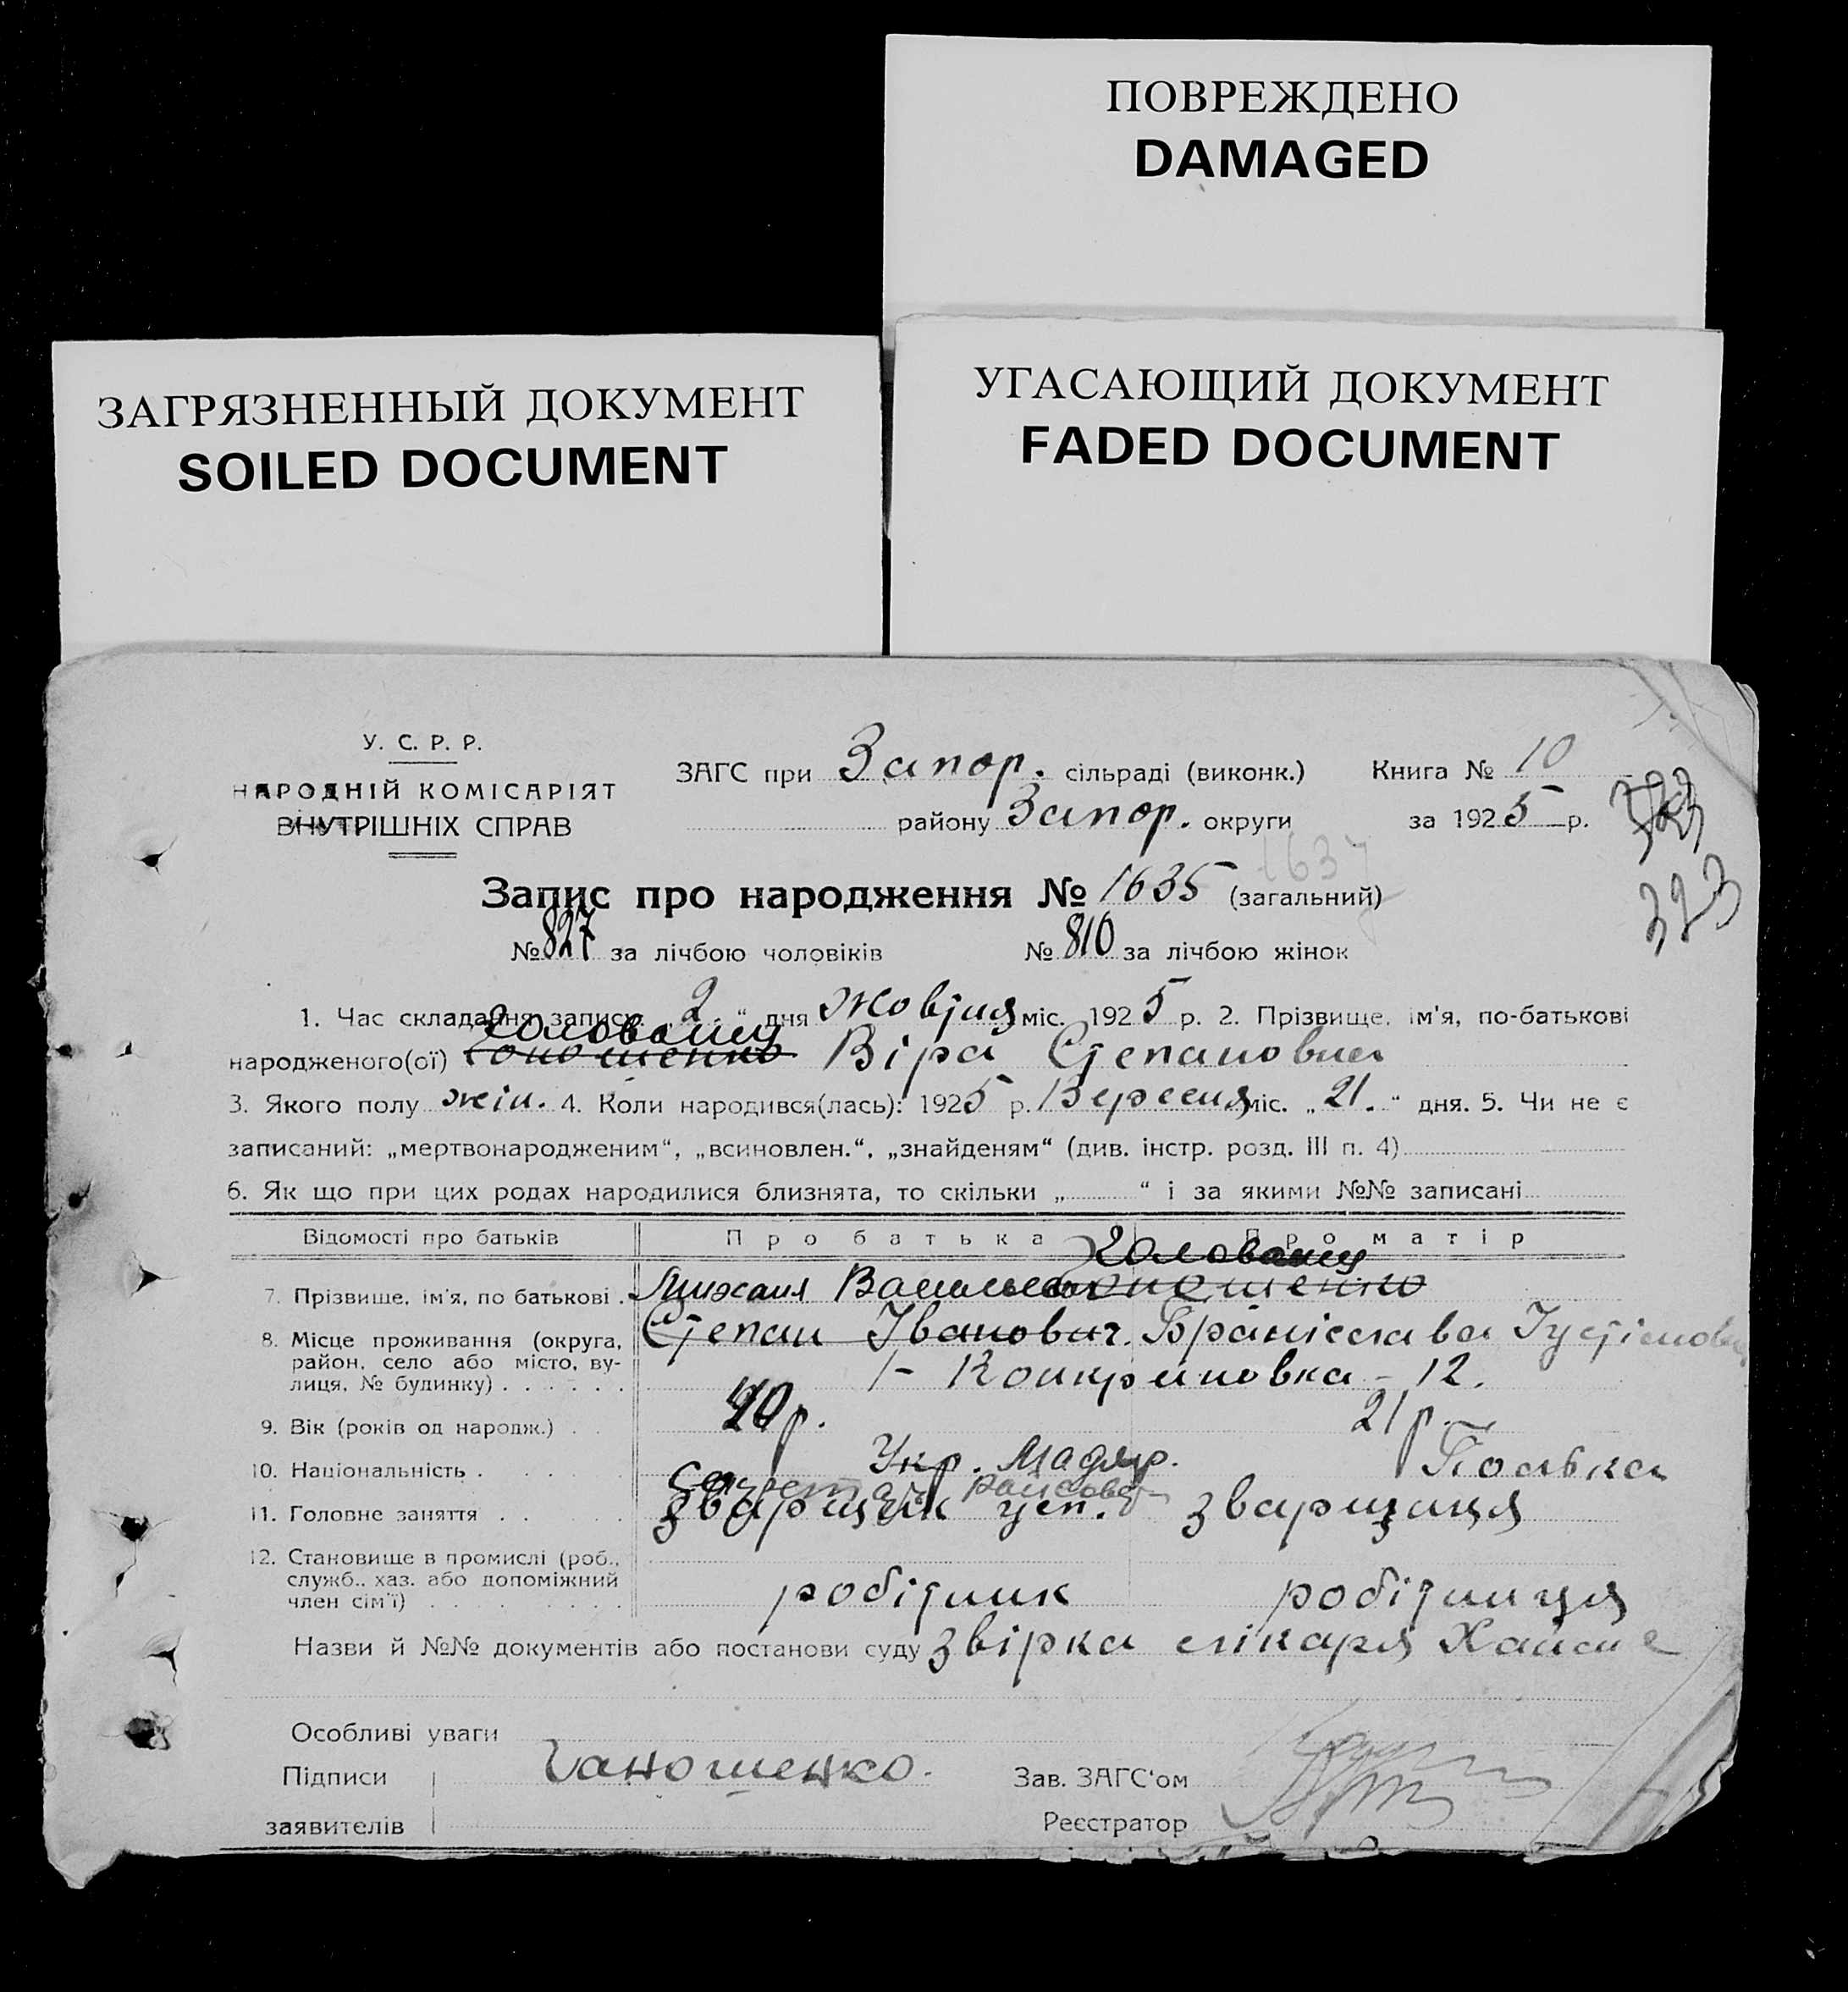 ПОВРЕЖДЕНО
DAMAGED
ЗАГРЯЗНЕННЫЙ ДОКУМЕНТ
SOILED DOCUMENT
УГАСАЮЩИЙ ДОКУМЕНТ
FADED DOCUMENT
У. С. Р. Р.
НАРОДНІЙ КОМІСАРІЯТ
ВНУТРІШНІХ СПРАВ
ЗАГС при Запор. сільраді (виконк.) Книга № 10
району Запор. округи за 1925 р.
323
Запис про народження № 1635 (загальний)
№ 827 за лічбою чоловіків № 810 за лічбою жінок
1. Час складання запису: 2 " дня Жовтня міс. 1925 р. 2. Прізвище, ім'я, по-батькові
народженого(ої) Віра Степановна
3. Якого полу жін. 4. Коли народився(лась): 1925 р. Вересня міс. „ 21. " дня. 5. Чи не є
записаний: „мертвонародженим", „всиновлен.", „знайденям" (див. інстр. розд. III п. 4)
6. Як що при цих родах народилися близнята, то скільки „ " і за якими №№ записані
Відомості про батьків Про батька Про матір
7. Прізвище, ім'я, по батькові .
Степан Іванович. Браніслава
8. Місце проживання (округа,
район, село або місто, ву-
лиця, № будинку) . . . . . . - 12.
9. Вік (років од народж.) . . р. 21 р.
10. Національність . . . . . Укр. Мадяр. Полька
11. Головне заняття . . . . зварщик цеп. зварщиця
12. Становище в промислі (роб.,
служб., хаз. або допоміжний
член сім'ї) . . . . . . . . робітник робітниця
Назви й №№ документів або постанови суду звірка лікаря
Особливі уваги
Підписи
заявителів
Зав. ЗАГС'ом
Реєстратор